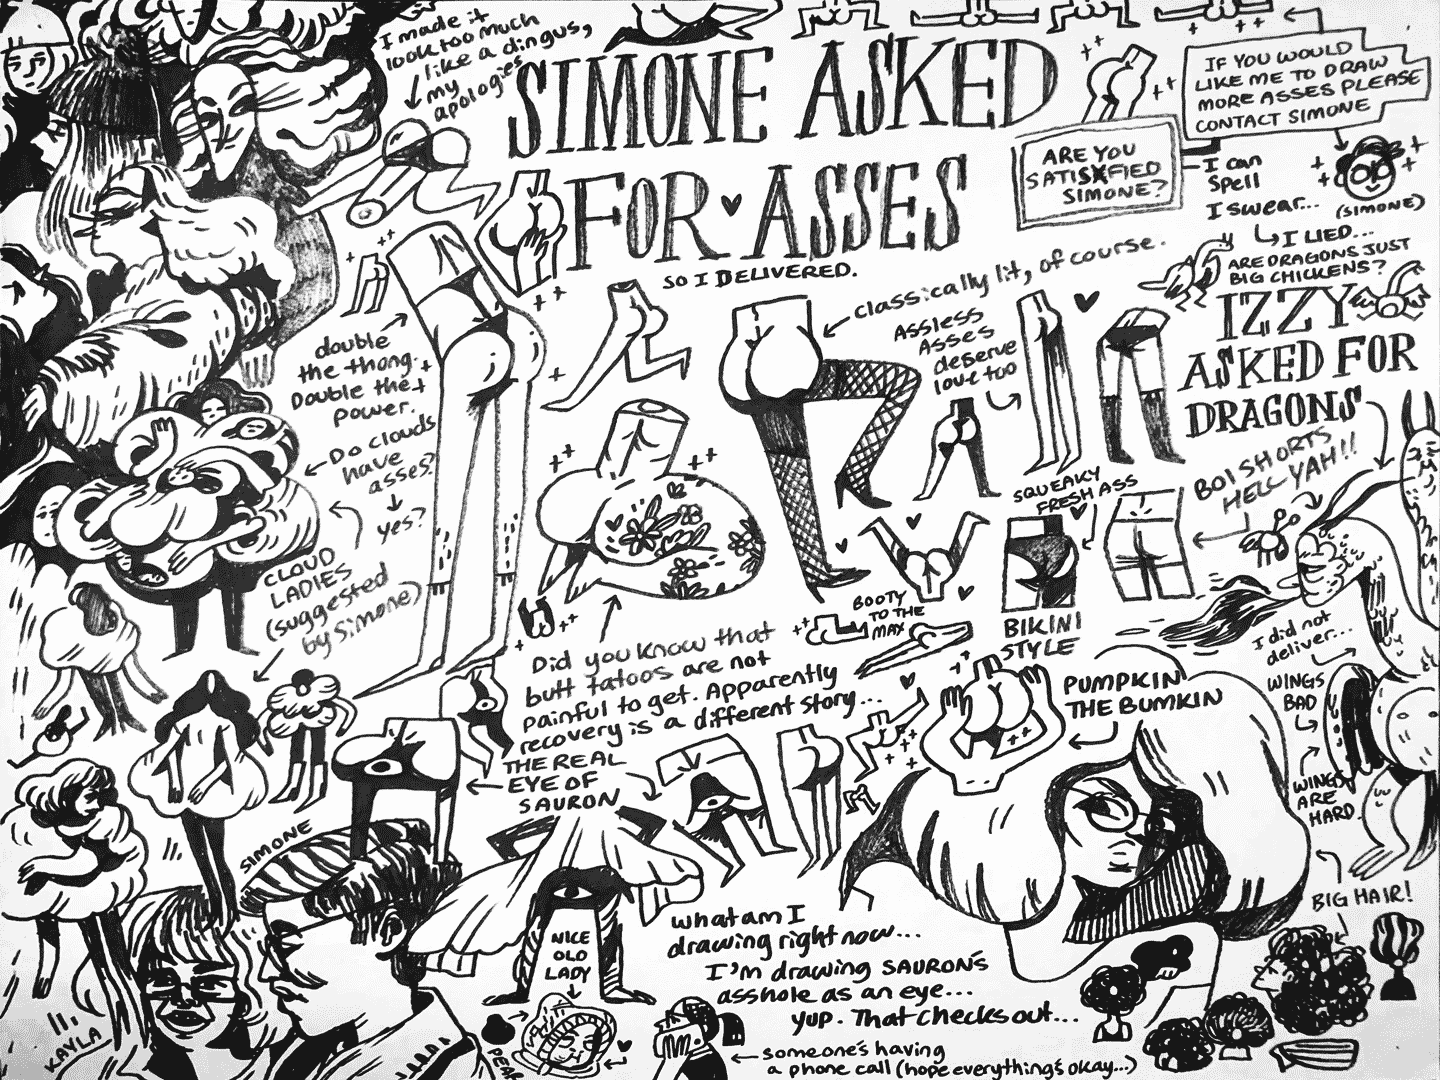 I made it
look too much
like a dingus,
my
apologies
SIMONE ASKED
FOR ASSES
SO I DELIVERED.
IF YOU WOULD
LIKE ME TO DRAW
MORE ASSES PLEASE
CONTACT SIMONE
ARE YOU
SATISFIED
SIMONE?
I can
spell
I swear...
(SIMONE)
I LIED...
ARE DRAGONS JUST
BIG CHICKENS?
IZZY
ASKED FOR
DRAGONS
classically lit, of course.
ASSLESS
ASSES
deserve
love too
double
the thong.
Double the
power.
Do clouds
have
asses?
yes?
CLOUD
LADIES
(suggested
by Simone)
SQUEAKY
FRESH ASS
BOI SHORTS
HELL YAH!!
BIKINI
STYLE
BOOTY
TO THE
MAX
Did you know that
butt tatoos are not
painful to get. Apparently
recovery is a different story...
I did not
deliver...
WINGS
BAD
WINGS
ARE
HARD.
PUMPKIN
THE BUMKIN
THE REAL
EYE OF
SAURON
SIMONE
BIG HAIR!
NICE
OLD
LADY
what am I
drawing right now...
I'm drawing SAURON'S
asshole as an eye...
YUP. That checks out...
KAYLA
PEAR
someone's having
a phone call (hope everything's okay...)